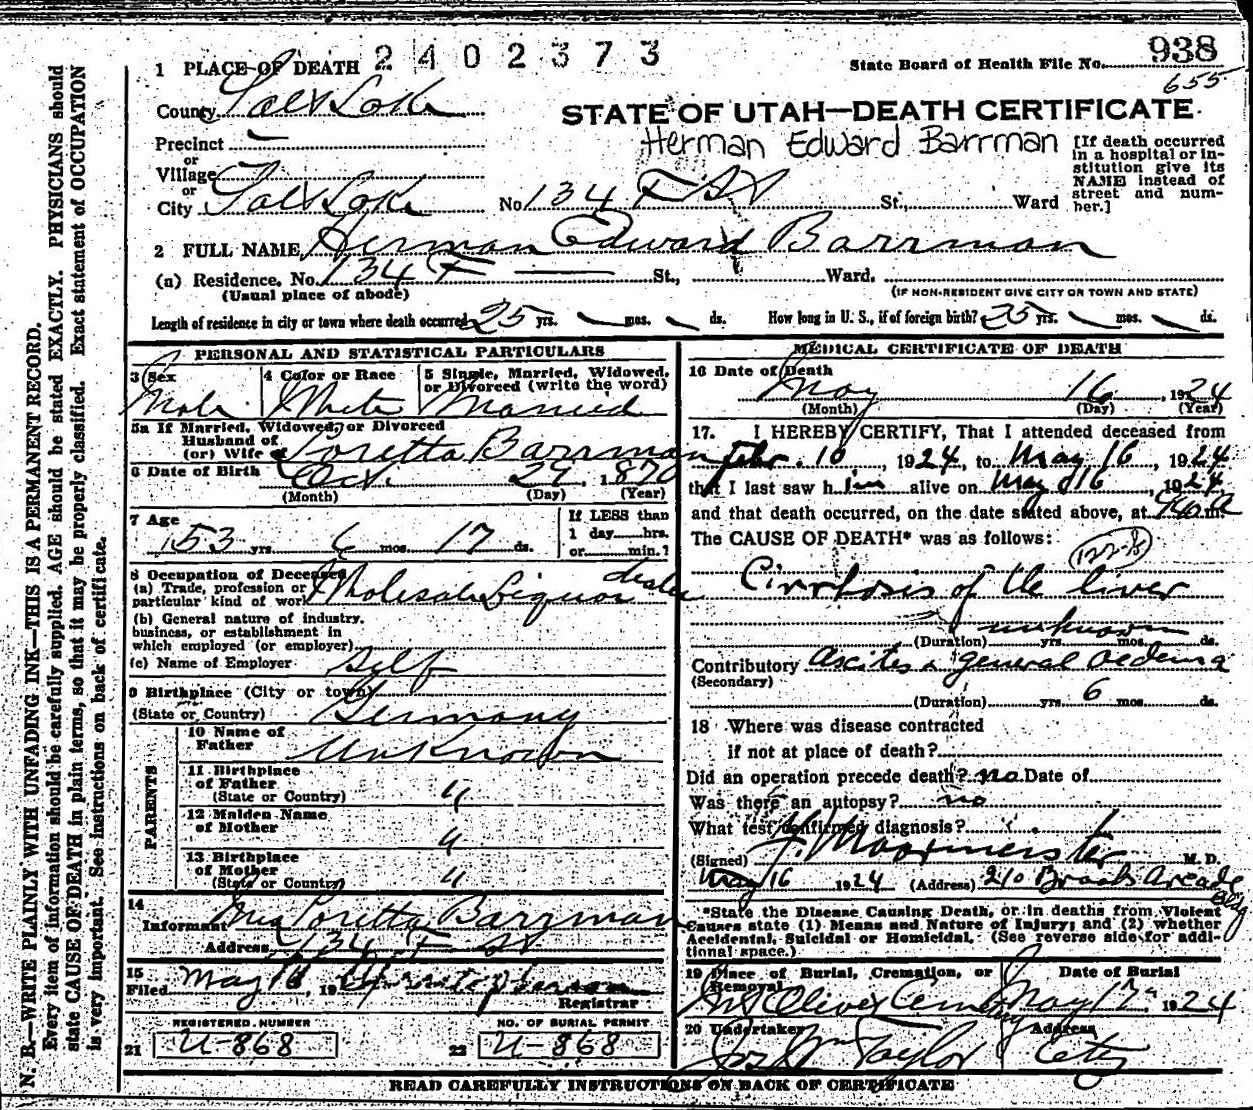 2402373
938
State Board of Health File No.
655
1 PLACE OF DEATH
County Salt Lake
STATE OF UTAH—DEATH CERTIFICATE
Herman Edward Barrman
Precinct
or
Village
or
City Salt Lake No 134 F St St., Ward
[If death occurred
in a hospital or in-
stitution give its
NAME instead of
street and num-
ber.]
2 FULL NAME Herman Edward Barrman
(a) Residence. No. 134 F St., Ward.
(Usual place of abode) (IF NON-RESIDENT GIVE CITY OR TOWN AND STATE)
Length of residence in city or town where death occurred 25 yrs. mos. ds. How long in U. S., if of foreign birth? 35 yrs. mos. ds.
PERSONAL AND STATISTICAL PARTICULARS
3 Sex
Male
4 Color or Race
White
5 Single, Married, Widowed,
or Divorced (write the word)
Married
5a If Married, Widowed, or Divorced
Husband of
(or) Wife of Loretta Barrman
6 Date of Birth Oct. 29 1870
(Month) (Day) (Year)
7 Age
53 yrs. 6 mos. 17 ds.
If LESS than
1 day hrs.
or min.?
8 Occupation of Deceased
(a) Trade, profession or
particular kind of work Wholesale Liquor dealer
(b) General nature of industry,
business, or establishment in
which employed (or employer)
(c) Name of Employer Self
9 Birthplace (City or town)
(State or Country) Germany
PARENTS
10 Name of
Father Unknown
11 Birthplace
of Father
(State or Country) "
12 Maiden Name
of Mother "
13 Birthplace
of Mother
(State or Country) "
14
Informant Mrs Loretta Barrman
Address 134 F St
15
Filed May 16, 19
Registrar
REGISTERED NUMBER
21 U-868
NO. OF BURIAL PERMIT
22 U-868
MEDICAL CERTIFICATE OF DEATH
16 Date of Death
May 16, 1924
(Month) (Day) (Year)
17. I HEREBY CERTIFY, That I attended deceased from
Febr. 10, 1924, to May 16, 1924
that I last saw him alive on May 16, 1924
and that death occurred, on the date stated above, at m.
The CAUSE OF DEATH* was as follows:
Cirrhosis of the liver
unknown
(Duration) yrs. mos. ds.
Contributory ascites & general oedema
(Secondary)
(Duration) yrs. 6 mos. ds.
18 Where was disease contracted
if not at place of death?
Did an operation precede death? no Date of
Was there an autopsy? no
What test confirmed diagnosis?
(Signed) F. Moormeister M. D.
May 16 1924 (Address) 210 Brooks Arcade Bldg
*State the Disease Causing Death, or in deaths from Violent
Causes state (1) Means and Nature of Injury; and (2) whether
Accidental, Suicidal or Homicidal. (See reverse side for addi-
tional space.)
19 Place of Burial, Cremation, or
Removal
Mt Olivet Cemetery
Date of Burial
May 17 1924
20 Undertaker Address
Jos Wm Taylor City
READ CAREFULLY INSTRUCTIONS ON BACK OF CERTIFICATE
N. B.—WRITE PLAINLY WITH UNFADING INK—THIS IS A PERMANENT RECORD.
Every item of information should be carefully supplied. AGE should be stated EXACTLY. PHYSICIANS should
state CAUSE OF DEATH in plain terms, so that it may be properly classified. Exact statement of OCCUPATION
is very important. See instructions on back of certificate.